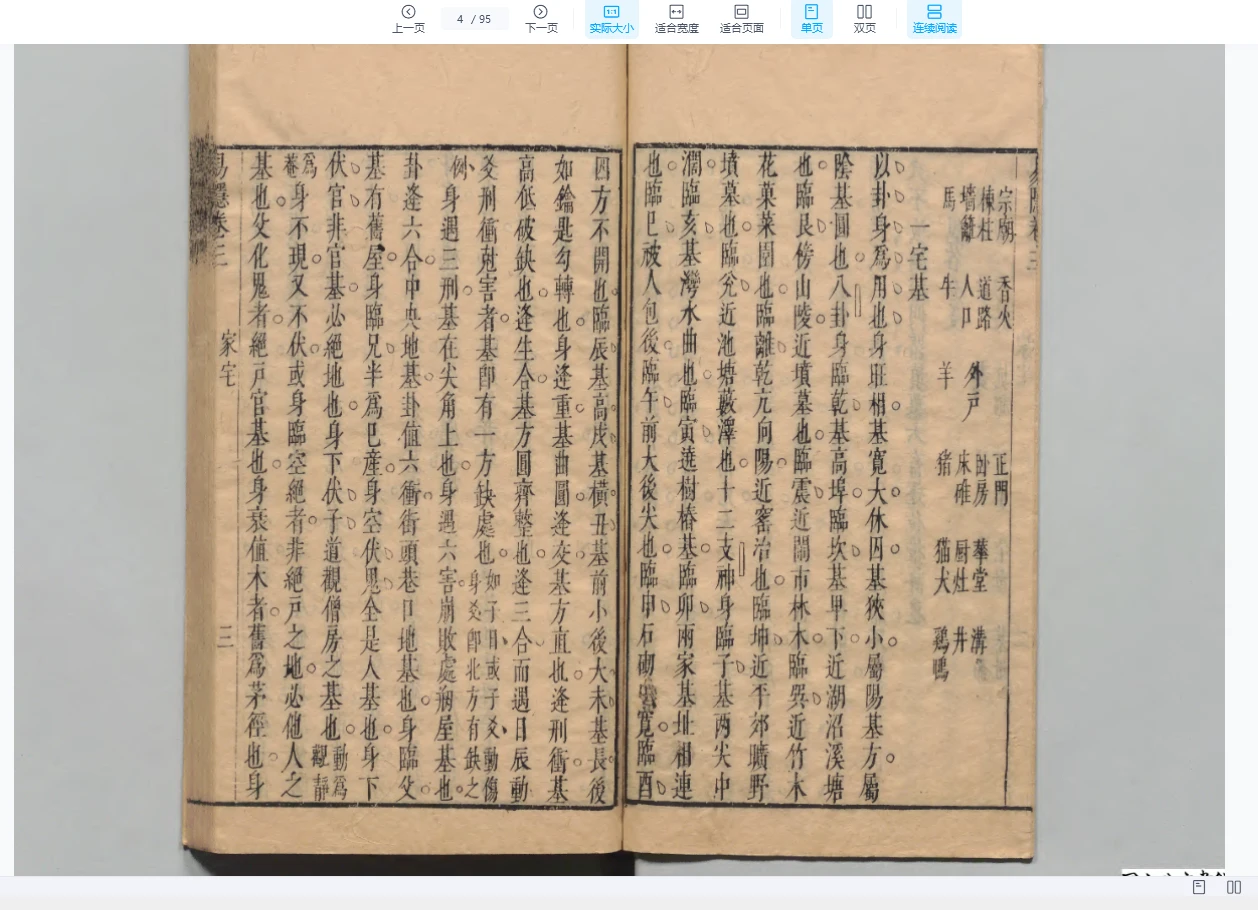 上一页
4 / 95
下一页
实际大小
适合宽度
适合页面
单页
双页
连续阅读
宗廟 香火 正門
棟柱 道路 外戶 卧房 拳堂 溝
墻籬 人口 床碓 厨灶 井
馬 牛 羊 猪 猫犬 鷄鴨
一宅基
以卦身爲用也身旺相基寬大休囚基狹小屬陽基方屬
陰基圓也八卦身臨乾基高埠臨坎基卑下近湖沼溪塘
也臨艮傍山陵近墳墓也臨震近鬧市林木臨巽近竹木
花菓菜園也臨離乾亢向陽近窰冶也臨坤近平郊曠野
墳墓也臨兊近池塘藪澤也十二支神身臨子基两尖中
濶臨亥基灣水曲也臨寅遶樹椿基臨卯兩家基址相連
也臨巳被人包後臨午前大後尖也臨申石砌寬臨酉
四方不開也臨辰基高戌基横丑基前小後大未基長後
如鑰匙勾轉也身逢重基曲圓逢交基方直也逢刑衝基
高低破缺也逢生合基方圓齊整也逢三合而遇日辰動
爻刑衝尅害者基卽有一方缺處也如子日或子爻動傷
身爻卽北方有缺之
例身遇三刑基在尖角上也身遇六害崩敗處硎屋基也
卦逢六合中央地基卦值六衝街頭巷口地基也身臨父
基有舊屋身臨兄半爲巳産身空伏鬼全是人基也身下
伏官非官基必絕地也身下伏子道觀僧房之基也動爲
觀靜
爲
菴身不現又不伏或身臨空絕者非絕戶之地必他人之
基也父化鬼者絕戶官基也身衰值木者舊爲茅徑也身
易隱卷三 家宅 三